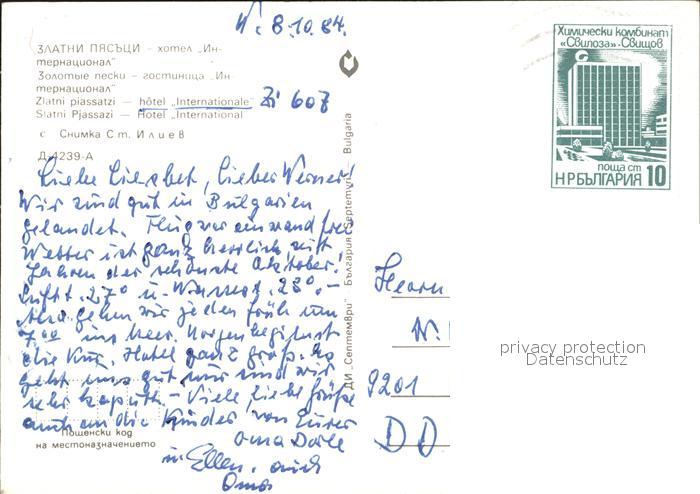 V. 8.10.84.
ЗЛАТНИ ПЯСЪЦИ – хотел „Ин-
тернационал"
Золотые пески – гостиница „Ин-
тернационал"
Zlatni piassatzi – hôtel „Internationale" Zi 607
Slatni Pjassazi – Hotel „International
с Снимка Ст. Илиев
Д-4239-А
Liebe Liesbet, lieber Werner!
Wir sind gut in Bulgarien
gelandet. Flug war einwand frei
Wetter ist ganz herrlich, seit
Jahren der schönste Oktober.
Luft t. 27° u. Wasser. 23°.–
gehen wir jeden früh um
7.00 ins Meer. Morgen beginnt
die Kur. Hotel ganz groß. Es
geht uns gut nur sind wir
sehr kaputt. – Viele, liebe Grüße
auch an die Kinder von Eurer
Oma Dorle
Ellen. auch
Пощенски код
на местоназначението
ДИ „Септември" България Septemvri – Bulgaria
Химически комбинат
«Свилоза» - Свищов
поща ст
НР БЪЛГАРИЯ 10
Herrn
W.
9201
DD
privacy protection
Datenschutz